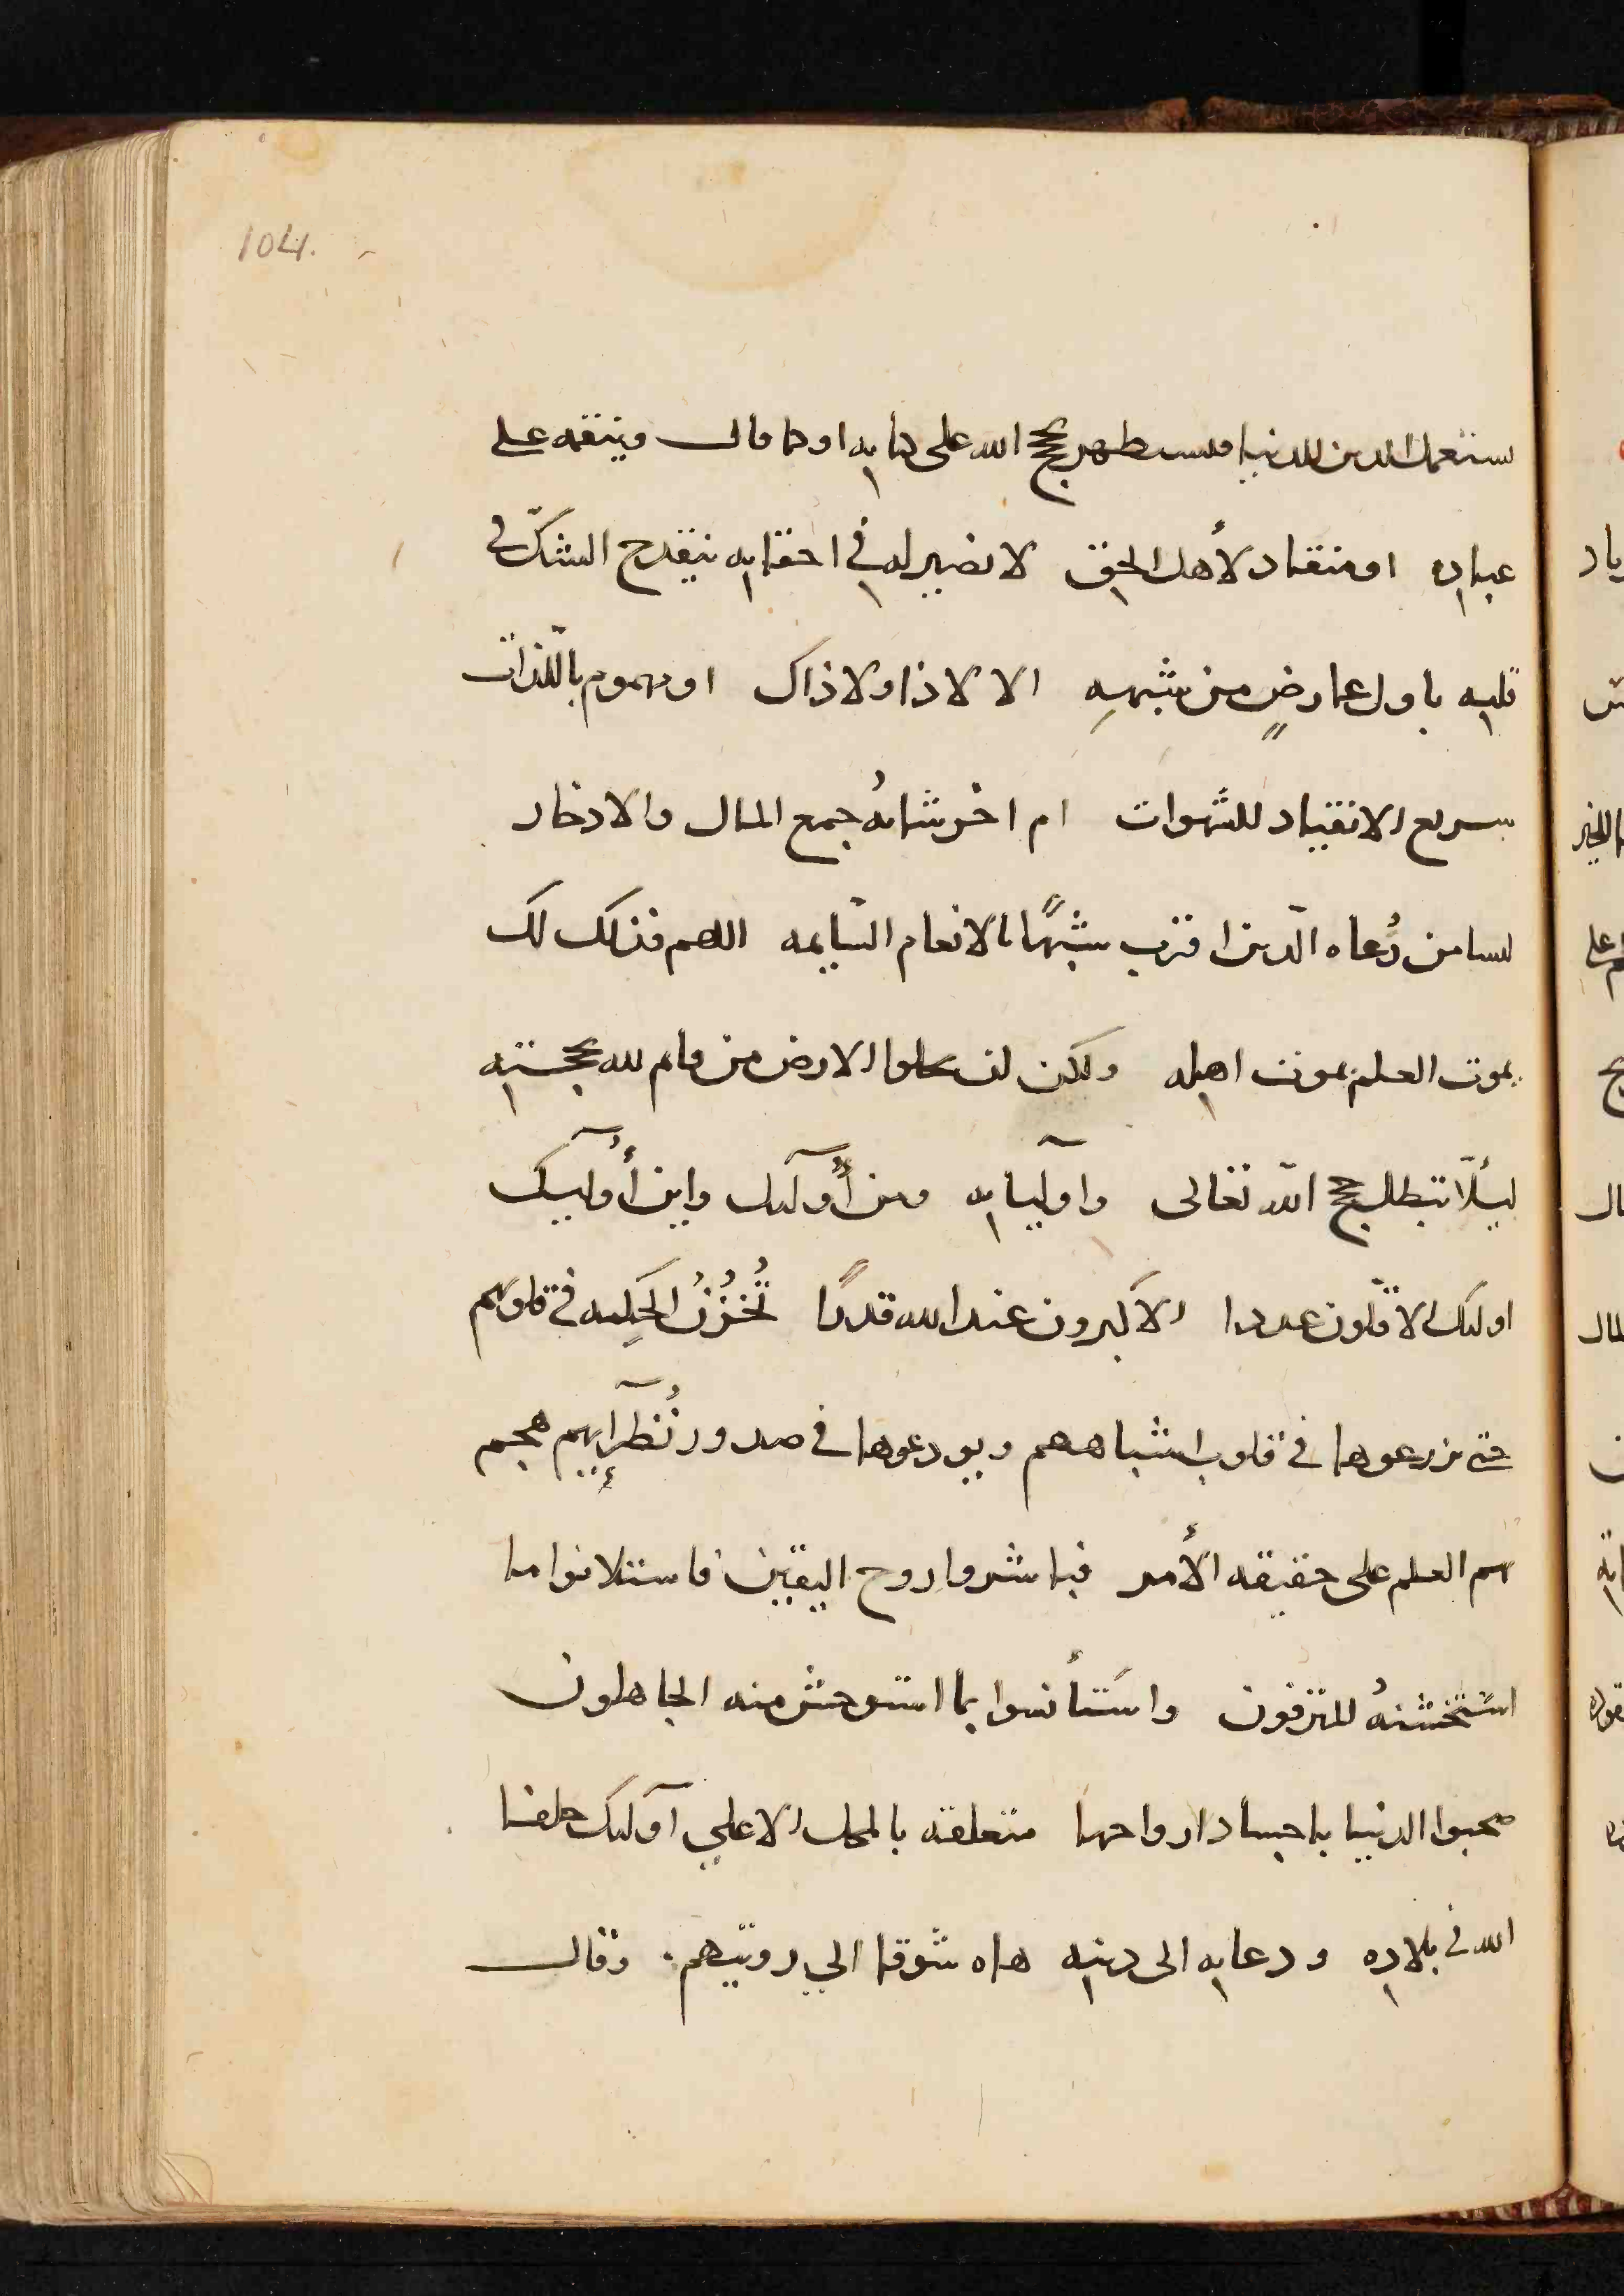 104.
ستعمل الدين للدنيا فيستظهر بحجج الله على كتابه او كما قال وبنعمه على
عباده او منقاد لأهل الحق لا بصيره له في احنائه ينقدح الشكّ في
قلبه باول عارضٍ من شبهةٍ الا لا ذا ولا ذاك او منهوم باللّذات
سريع الانقياد للشهوات ام اخر شانهُ جمع المال والادخار
ليسا من دُعاه الدّين اقرب شبهًا بالانعام السّايمه اللهم فذلك لك
يموت العلم بموت اهله ولكن لن تخلوا الارض من قايم لله بحجته
ليلّا تبطل حجج الله تعالى وأوليايه ومن أُولٓيك واين أُولٓيك
اوليك الاقلّون عددا الاكبرون عند الله قدرًا تُخزُنُ الحِكمه في قلوبهم
حتى يزرعوها في قلوب اشباههم ويودعوها في صدور نُظرٓايِهم هجم
بهم العلم على حقيقه الأمر فباشروا روح اليقين فاستلانوا ما
استخشنهُ المترفون واستأنسوا بما استوحش منه الجاهلون
صحبوا الدنيا باجساد ارواحها متعلقه بالمحل الاعلى اولٓيك خلفا
الله في بلاده ودعاته الى دينه هاه شوقا الي رويتهم. وقال